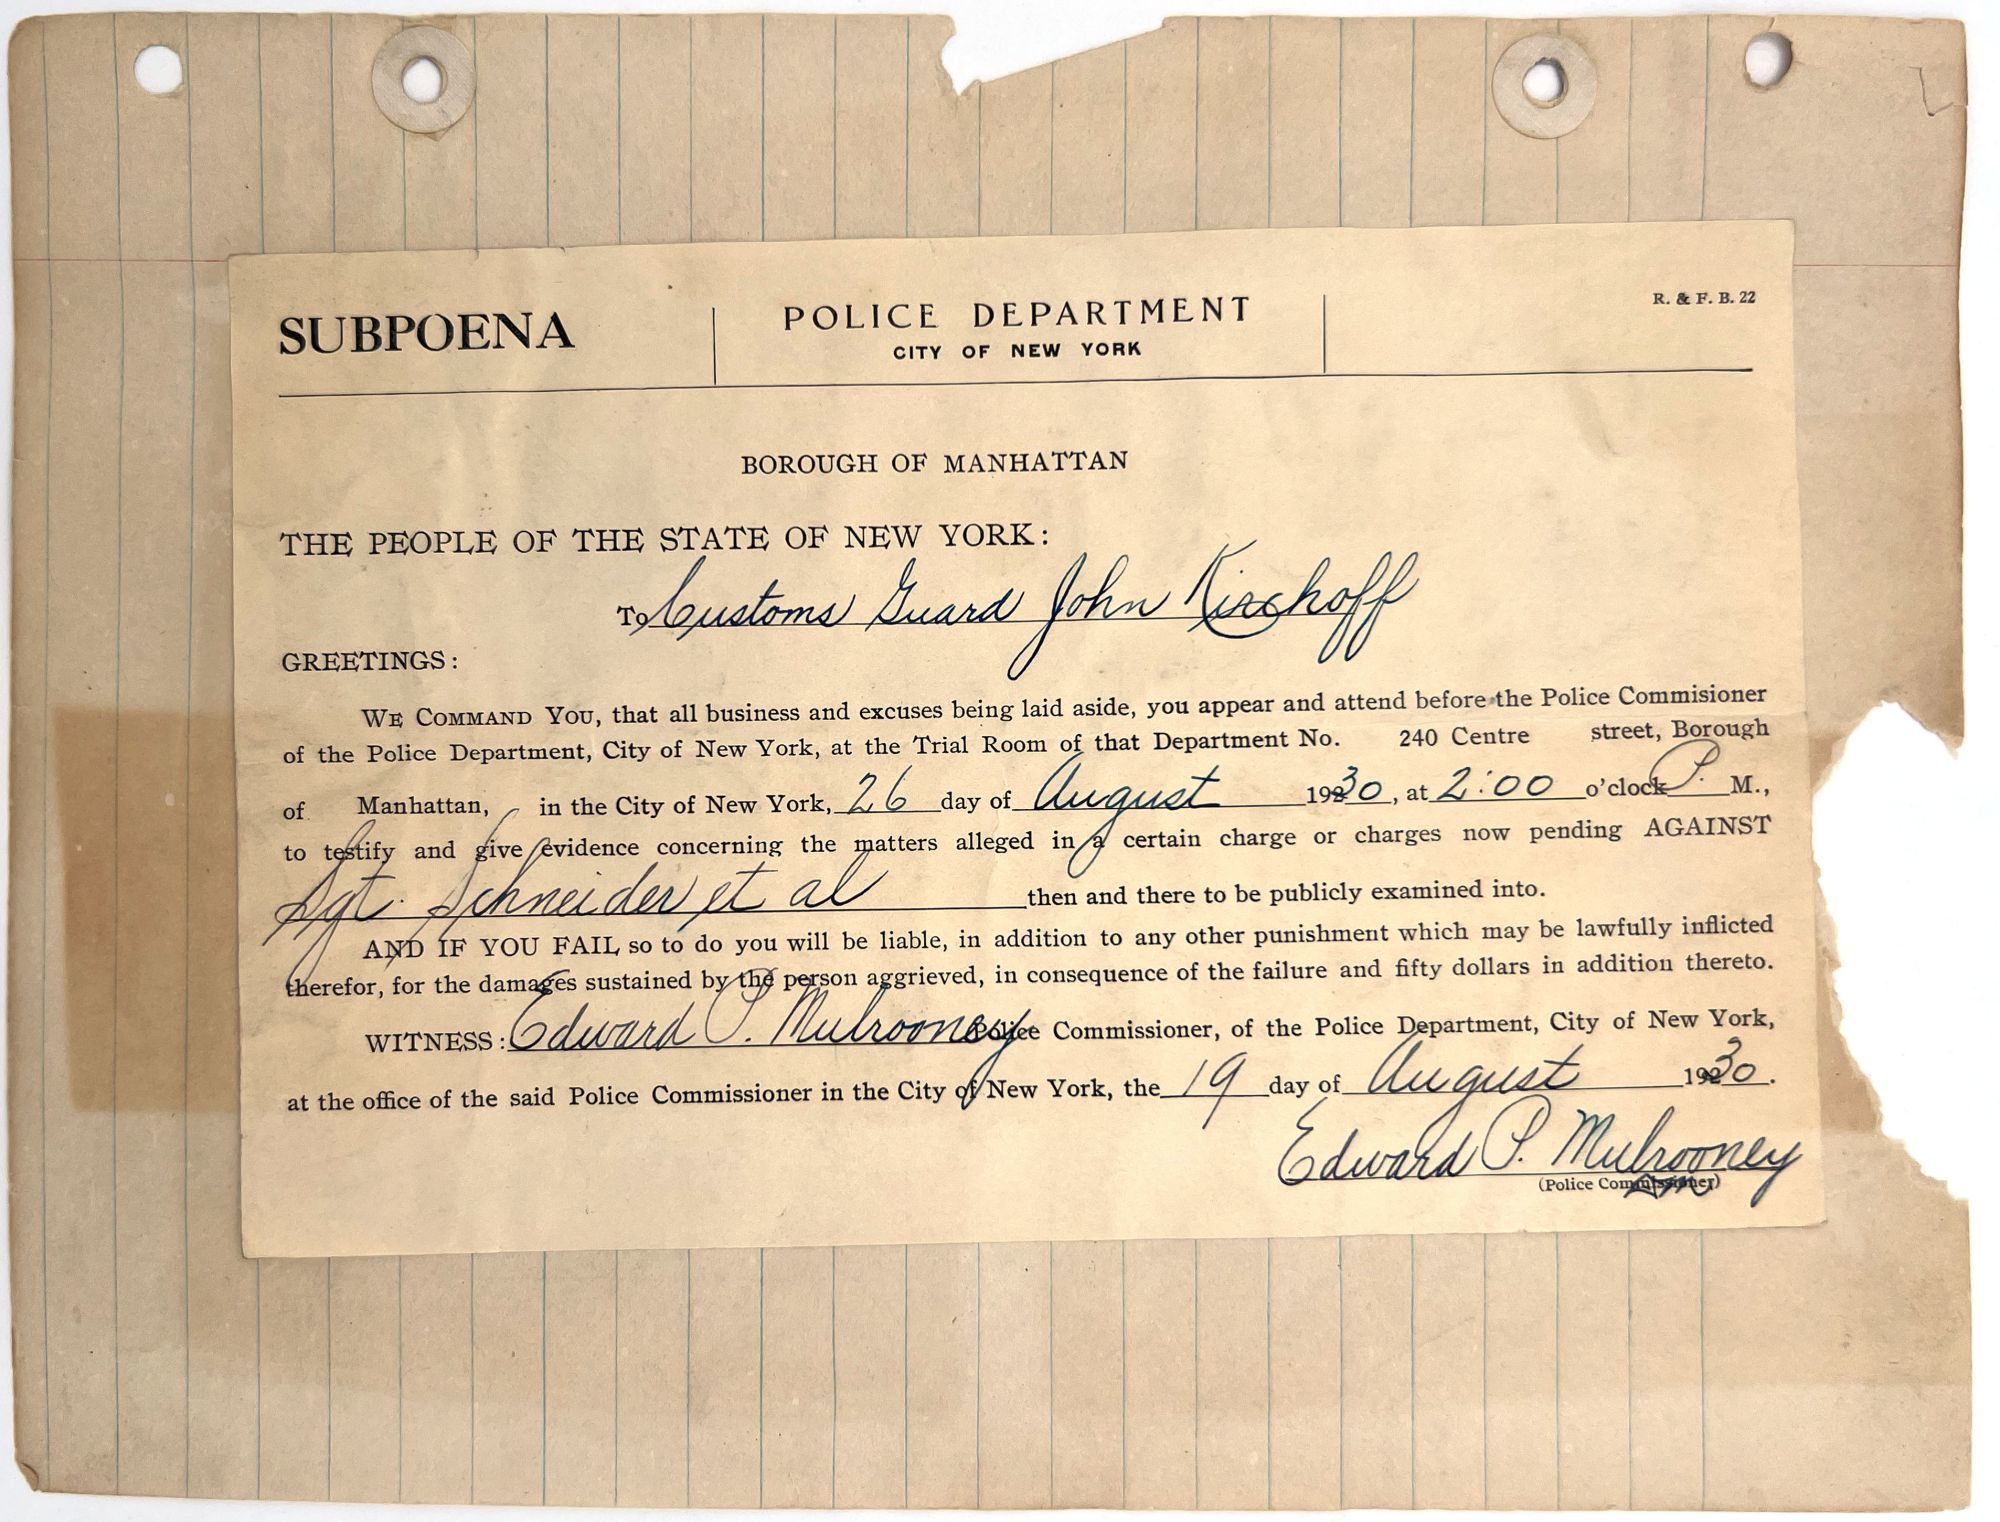 SUBPOENA
POLICE DEPARTMENT
CITY OF NEW YORK
R. & F. B. 22
BOROUGH OF MANHATTAN
THE PEOPLE OF THE STATE OF NEW YORK:
To Customs Guard John Kirchoff
GREETINGS:
WE COMMAND YOU, that all business and excuses being laid aside, you appear and attend before the Police Commisioner
of the Police Department, City of New York, at the Trial Room of that Department No. 240 Centre street, Borough
of Manhattan, in the City of New York, 26 day of August 19230, at 2:00 o'clock P. M.,
to testify and give evidence concerning the matters alleged in a certain charge or charges now pending AGAINST
Sgt. Schneider et al then and there to be publicly examined into.
AND IF YOU FAIL so to do you will be liable, in addition to any other punishment which may be lawfully inflicted
therefor, for the damages sustained by the person aggrieved, in consequence of the failure and fifty dollars in addition thereto.
WITNESS: Edward P. Mulrooney Police Commissioner, of the Police Department, City of New York,
at the office of the said Police Commissioner in the City of New York, the 19 day of August 19230.
Edward P. Mulrooney
(Police Commissioner)